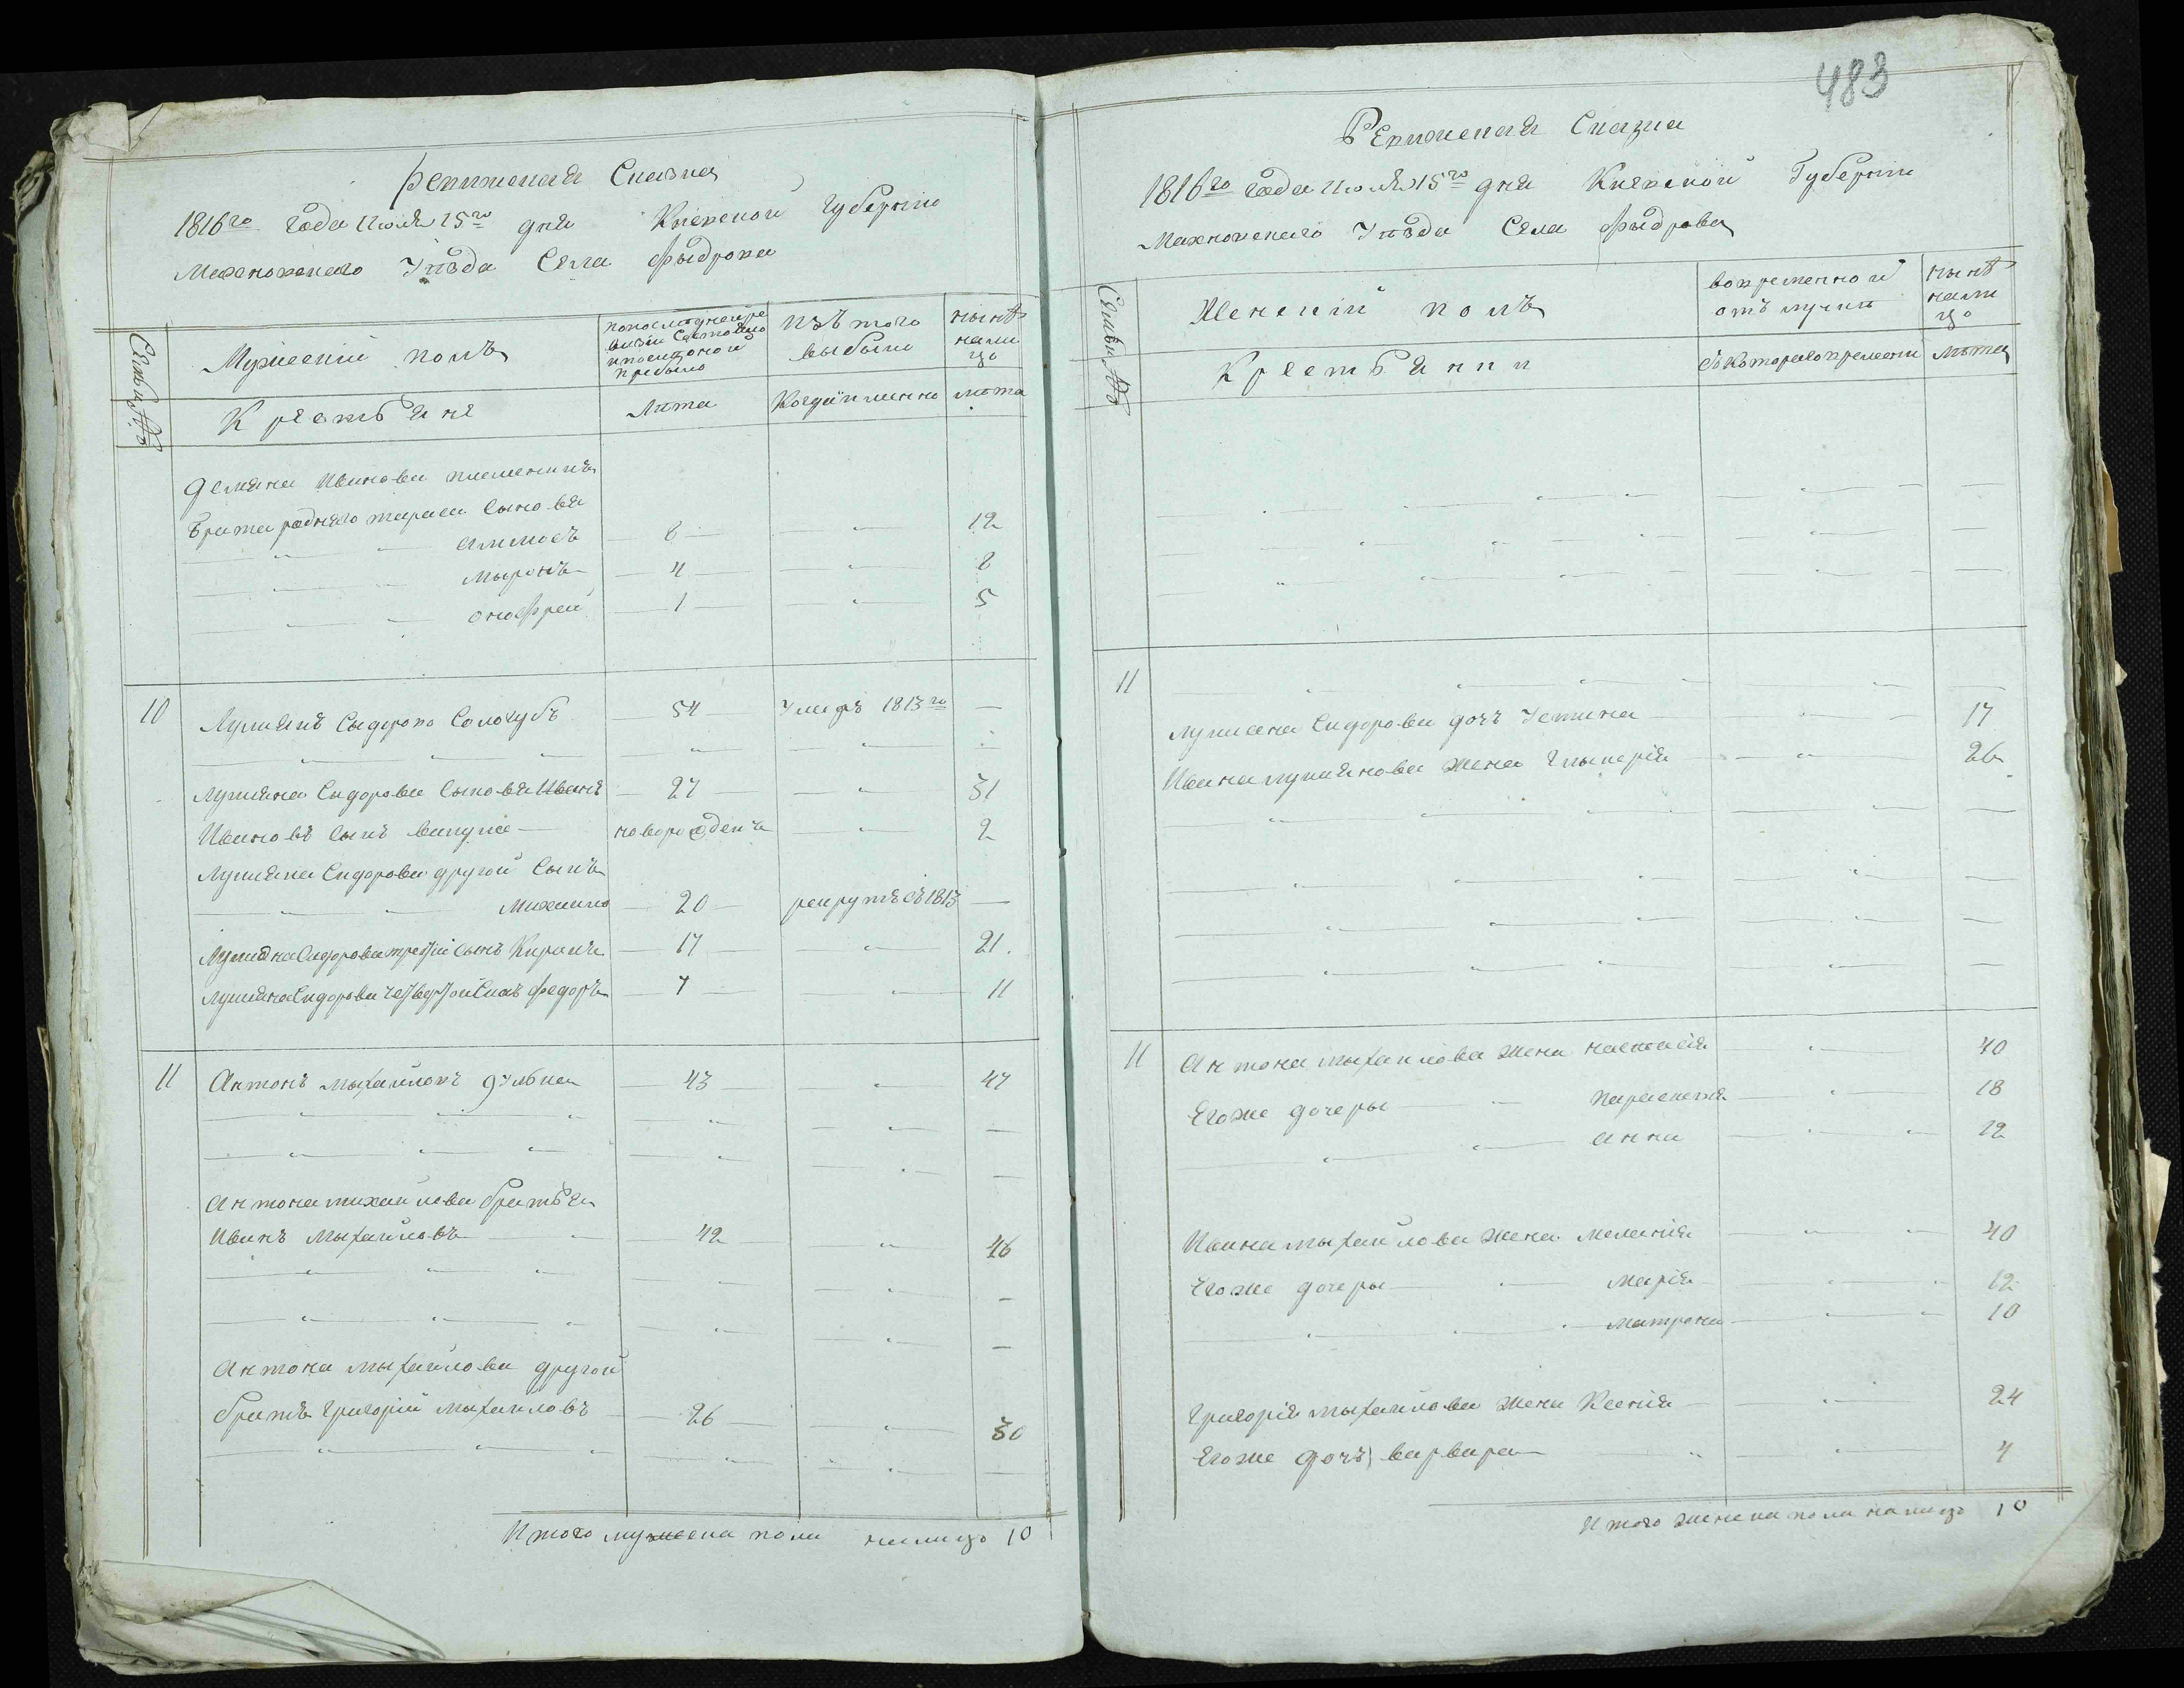 Ревижская Сказка
1816го Года Июля 15го дня Киевской Губернии
Махновского Уѣзда Села Фыдрова
Семьи №
Мужеский полъ
По последней ревизии состояло и после оной прибыло
Изъ того выбыли
Нынѣ налицо
Крестьяне
Лѣта
Когда именно
Лѣта
Демяна Иванова племянникъ
Брата роднаго тараса Сыновья
Алимосъ 8 12
Мыронъ 4 8
Онофрей 1 5
10 Лукиянъ Сыдоровъ Сологубъ 54 Умеръ 1813го —
Лукияна Сыдорова Сыновья Иванъ 27 31
Ивановъ Сынъ новорожденъ 2
Лукияна Сидорова другой Сынъ
Михайло 20 рекрутъ съ 1813 —
Лукияна Сидорова третий Сынъ 17 21.
Лукияна Сидорова четвертой Сынъ Федоръ 7 11
11 Антонъ Мыхайловъ 43 47
Антона михайлова братья
Иванъ Мыхайловъ 42 46
Антона Мыхайлова другой
братъ Григорий Мыхайловъ 26 30
Итого мужеска пола налицо 10
483
Ревижская Сказка
1816го Года Июля 15го дня Киевской Губернии
Махновского Уѣзда Села Фыдрова
Семьи №
Женский полъ
Во временной отлучкѣ
Нынѣ налицо
Крестьянки
Съ котораго времени
Лѣта
11
Лукияна Сидорова дочъ Устина 17
Ивана лукиянова жена Глыкерія 26
11 Антона мыхайлова жена настасія 40
Егоже дочеры Параскевія 18
Анна 12
Ивана мыхайлова жена Меланія 40
Егоже дочеры Марія 12
Матрона 10
Григорія мыхайлова жена Ксенія 24
Егоже дочъ варвара 4
Итого женска пола налицо 10